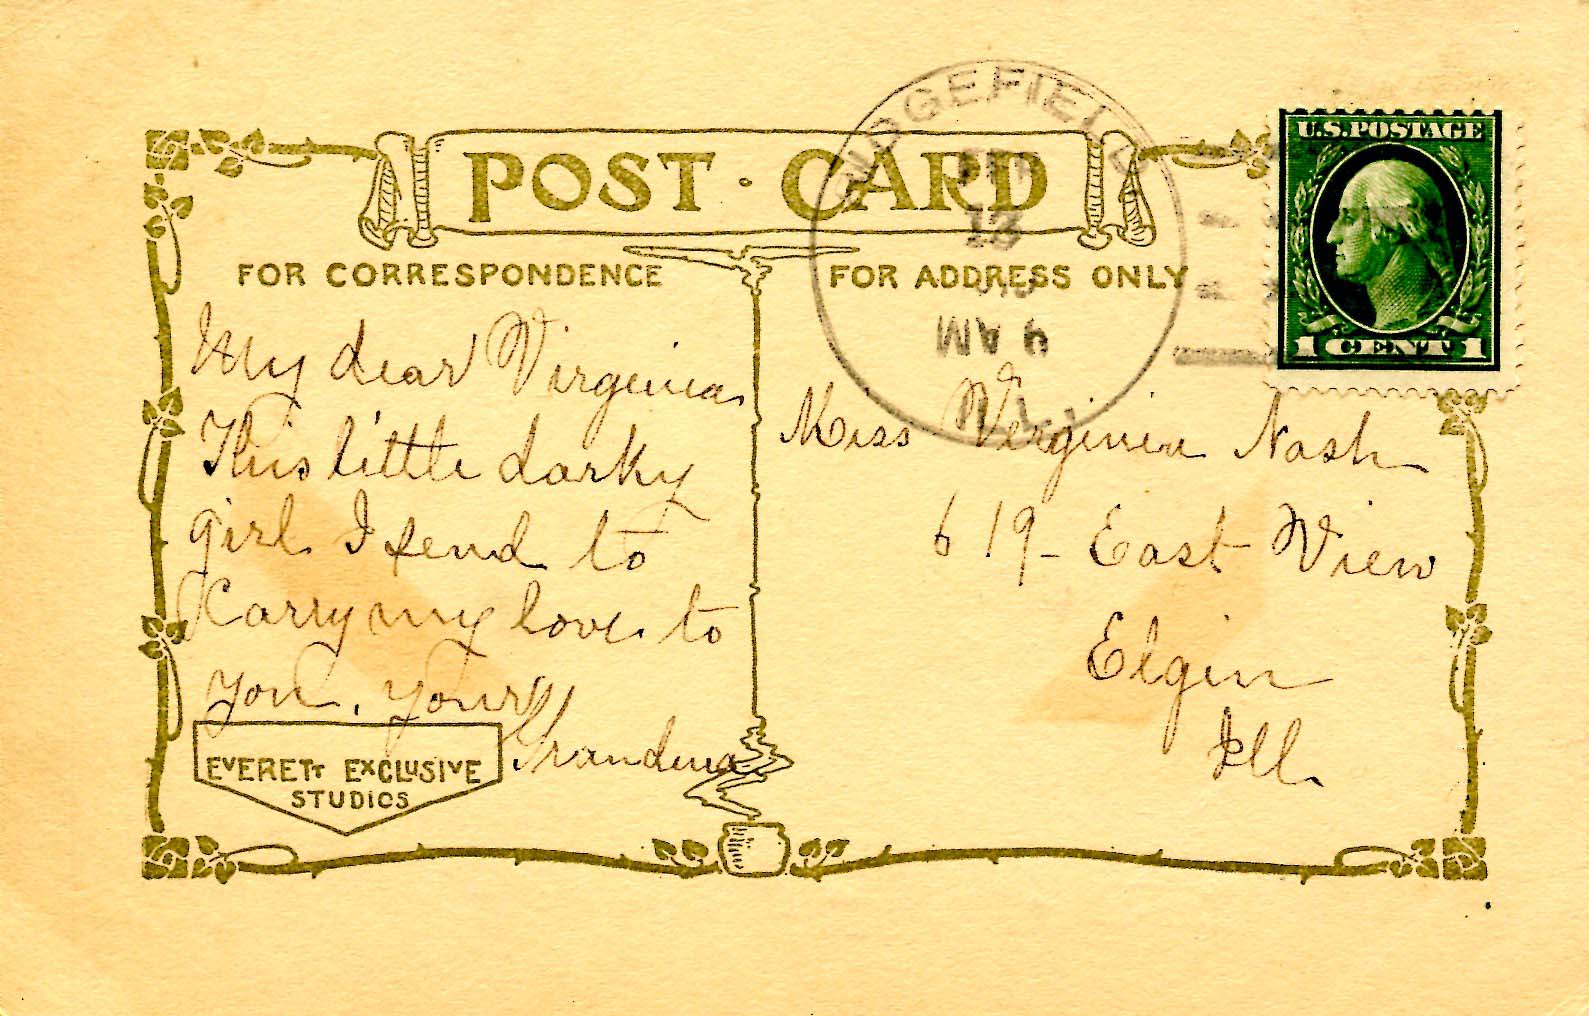 POST · CARD
FOR CORRESPONDENCE
My dear Virginia
This little darky
girl I send to
Carry my love to
you, Yours
Grandma
EVERETT EXCLUSIVE
STUDIOS
FOR ADDRESS ONLY
RIDGEFIELD
13
9 AM
ILL.
U.S. POSTAGE
1 CENT 1
Miss Virginia Nash
619 - East View
Elgin
Ill.